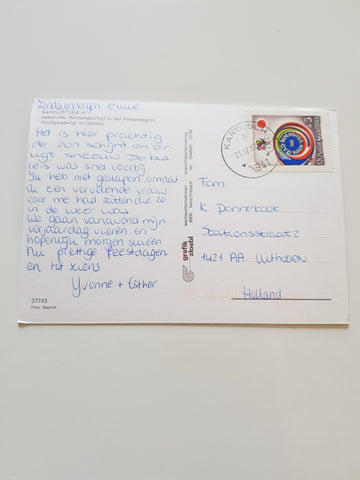 Zondagmorgen
Kartitsch 1356 m
bekannter Wintersportort in der Ferienregion
Hochpustertal in Osttirol
Het is hier prachtig
de zon schijnt en er
ligt sneeuw. De bus
reis was snel voorbij.
Ik heb niet geslapen omdat
ik een vervelende vrouw
voor me had zitten die zo
in de weer was
We gaan vanavond mijn
verjaardag vieren en
hopenlijk morgen skieën
Nu prettige feestdagen
en tot ziens
Yvonne + Esther
37743
Foto: Baptist
werbeunternehmen
ansichtskartenverlag
9900
grafik
zloebl
KARTITSCH
Fam.
K Donnekoek
Stationsstraat 2
1421 AA Uithoorn
Holland